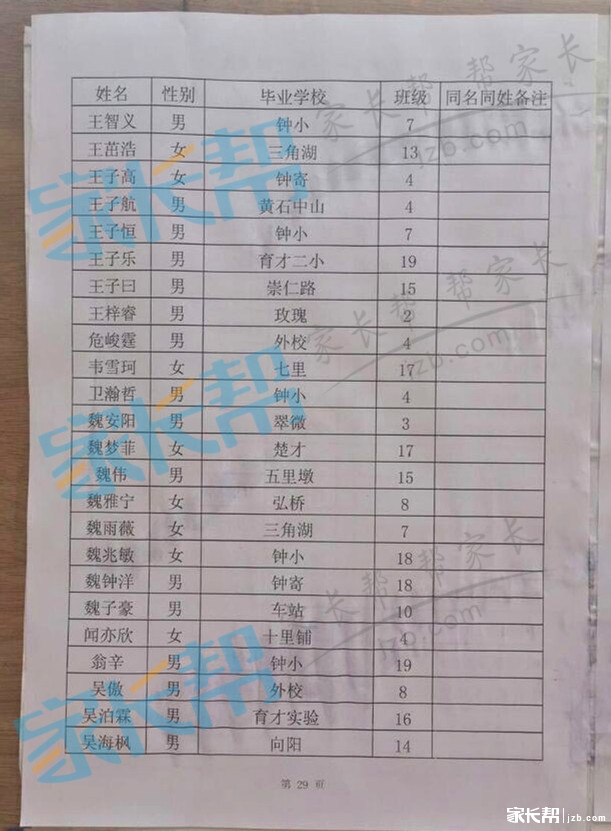 姓名 性别 毕业学校 班级 同名同姓备注
王智义 男 钟小 7
王茁浩 女 三角湖 13
王子高 女 钟寄 4
王子航 男 黄石中山 4
王子恒 男 钟小 7
王子乐 男 育才二小 19
王子曰 男 崇仁路 15
王梓睿 男 玫瑰 2
危峻霆 男 外校 4
韦雪珂 女 七里 17
卫瀚哲 男 钟小 4
魏安阳 男 翠微 3
魏梦菲 女 楚才 17
魏伟 男 五里墩 15
魏雅宁 女 弘桥 8
魏雨薇 女 三角湖 7
魏兆敏 女 钟小 18
魏钟洋 男 钟寄 18
魏子豪 男 车站 10
闻亦欣 女 十里铺 4
翁辛 男 钟小 19
吴傲 男 外校 8
吴泊霖 男 育才实验 16
吴海枫 男 向阳 14
第 29 页
家长帮
家长帮
家长帮
家长帮
帮家长
jzb.com
家长帮 帮家长
jzb.com
家长帮 帮家长
jzb.com
家长帮 jzb.com